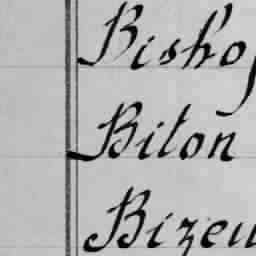 Bishop
Biton
Bizeu